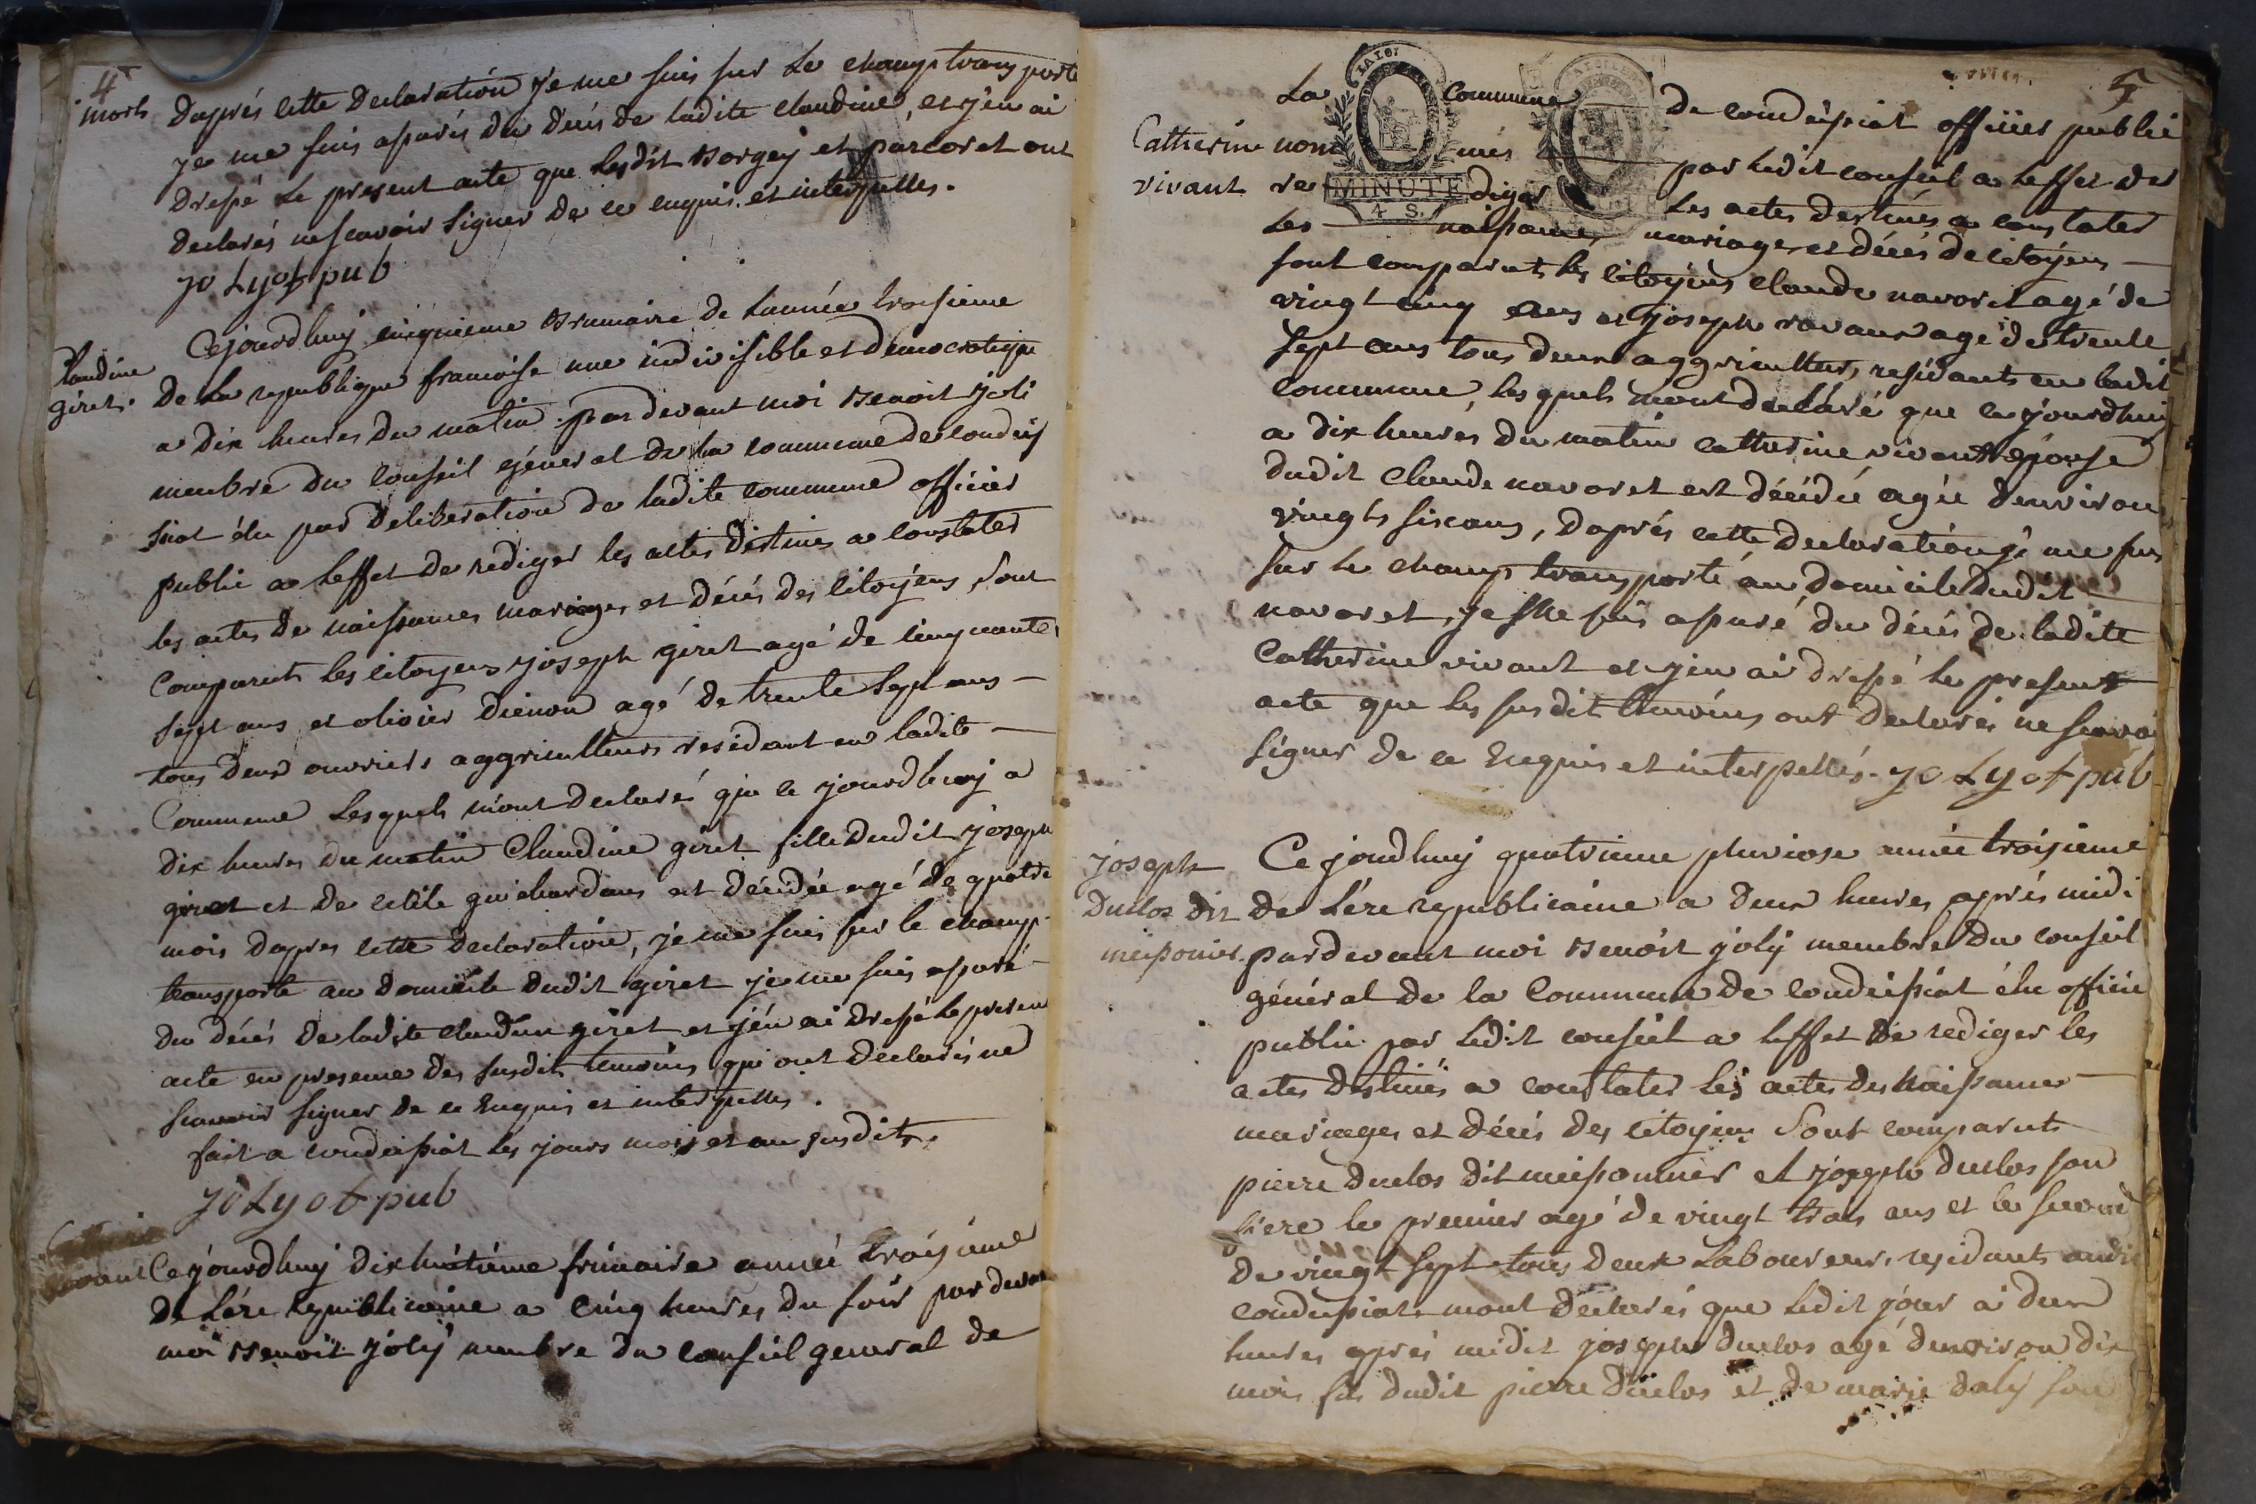 4
morts
daprés cette declaration je me suis sur le champ transporté
je me suis asparés du décis de ladite claudine, et j'en ai
dressé le present acte que lesdit Borgey et parcoret ont
declarés ne scavoir signer de ce enquis et interpellés.
joLy of pub
Claudine
giret.
Cejourdhuy cinquieme Brumaire de Lannée troisieme
de la republique francoise une indivisible et democratique
a dix heures du matin pardevant moi Benoit joli
membre du conseil géneral de la commune de condeis
siat élu par deliberation de ladite commune officier
public a leffet de rediger les actes destinés a constater
les actes de naissances mariages et décés des citoyens, sont
comparuts les citoyens joseph giret agé de cinquante
sept ans et olivier dienon agé de trente sept ans —
tous deux ouvriers aggriculteurs residant en ladite —
Commune Lesquels m'ont declaré que ce jourdhuy a
dix heures du matin Claudine giret fille dudit joseph
giret et de cette guichardans est décédée agé de quatre
mois dapres cette declaration, je me suis sur le champ
transporté au domicile dudit giret je me suis asparé
du décés de ladite claudine giret et j'en ai dressé le present
acte en presence des susdits temoins qui ont declarés ne
scavoir signer de ce Enquis et interpellés.
fait a condeissiat les jours mois et an susdits.
joLy of pub
Catherine
vivant
Cejourdhuy dixhuitiéme frimaire année troisieme
de Lére republicaine a cinq heures du soir par devant
moi Benoit joly membre du conseil general de
5
La commune de condeissiat officier public
Catherine
vivant
nommés par ledit conseil a leffet de
rediger Les actes destinés a constater
MINUTE
4 S.
LA LOI
Les naissances mariages et décés de citoyens —
sont comparuts les citoyens claude navoret agé de
vingt cinq ans et joseph ravaux agé de trente
sept ans tous deux aggriculteurs residants en ladit
commune, lesquels mont declaré que cejourdhuy
a dix heures du matin catherine vivant épouse
dudit Claude navoret est décédée agée denviron
vingts six ans, daprés cette declaration je me suis
sur le champ transporté au domicile dudit —
navoret, je me suis asparé du décés de ladite
Catherine vivant et j'en ai dressé le present
acte que les susdit temoins ont declarés ne scavoi
signer de ce Enquis et interpellés. joLy of pub
joseph
Duclos dit
meissonier.
Ce jourdhuy quatrieme pluviose année troisieme
de Lére republicaine a deux heures aprés midi
pardevant moi Benoit joly membre du conseil
général de la Commune de condeissiat élu officie
public par ledit conseil a leffet de rediger les
actes destinés a constater les actes des naissances —
mariages et décés des citoyens Sont comparuts
pierre duclos dit meissonnier et joseph duclos son
frere le premier agé de vingt trois ans et le second
de vingt sept tous deux Laboureurs residants audit
condeissiat mont declarés que ledit jour a deux
heures aprés midit joseph duclos agé denviron dix
mois fils dudit pierre duclos et de marie daly son